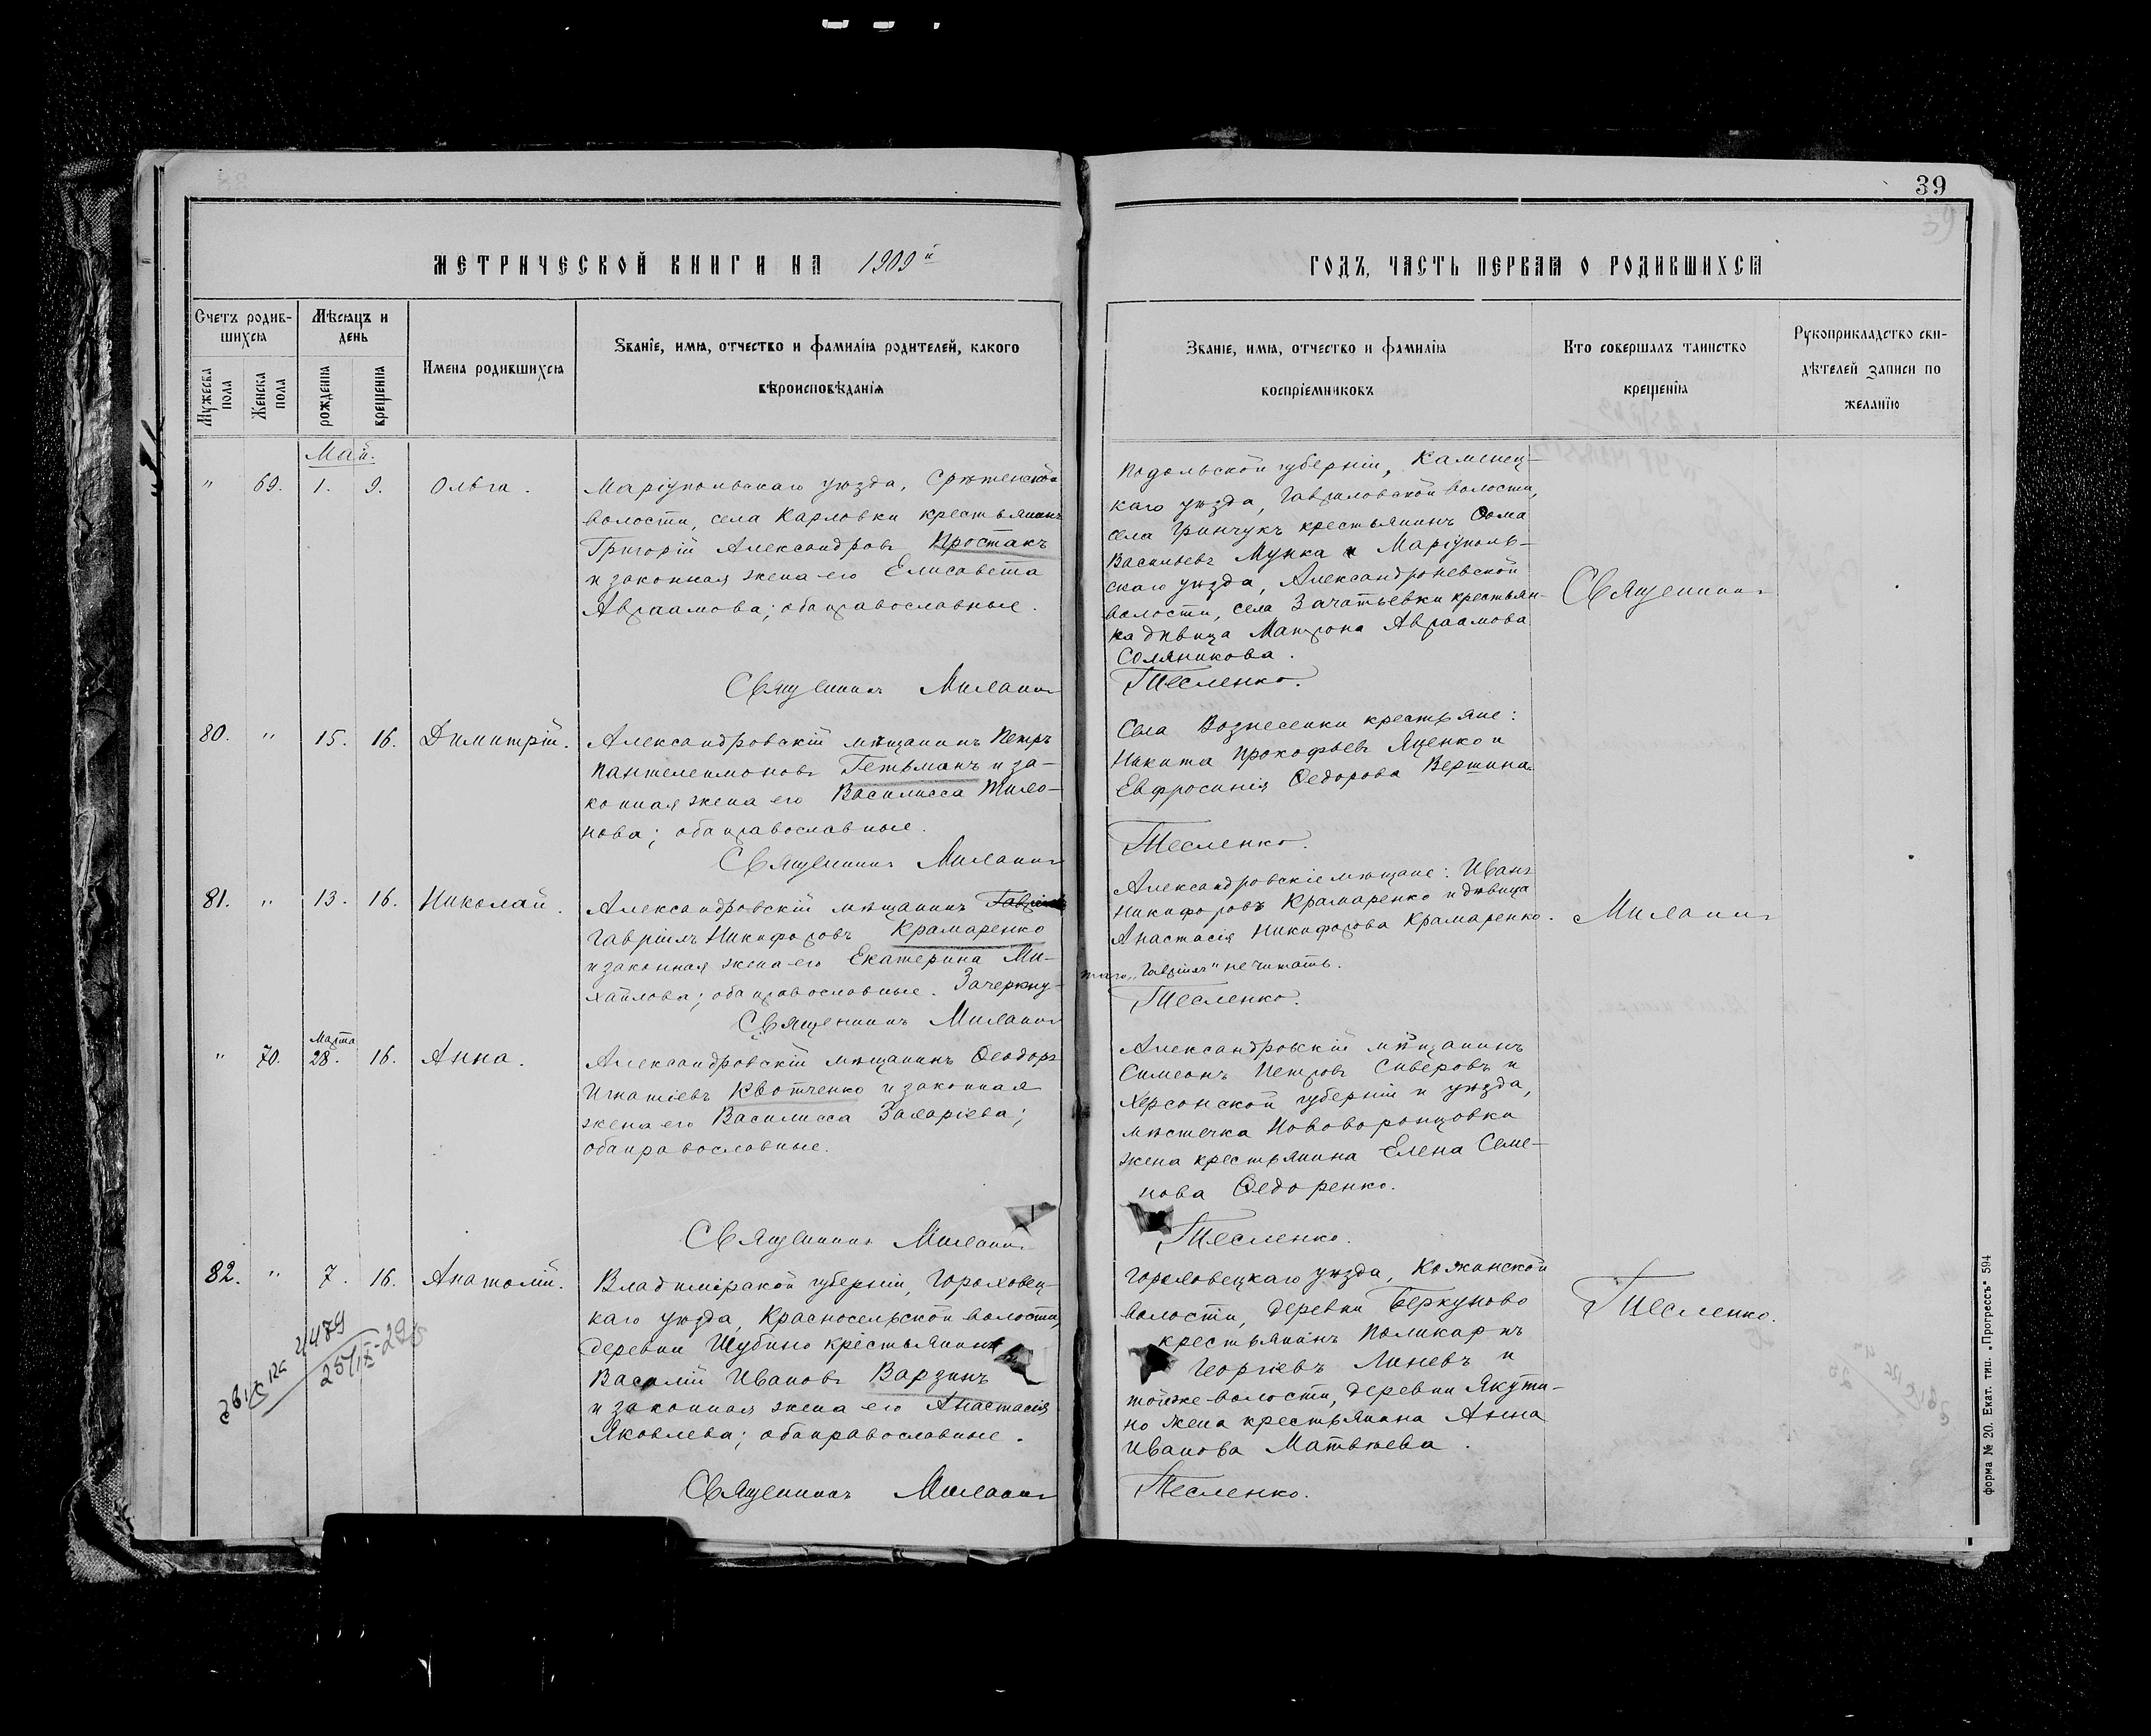 39
МЕТРИЧЕСКОЙ КНИГИ НА 1909 й
ГОДЪ, ЧАСТЬ ПЕРВАЯ О РОДИВШИХСЯ
Счетъ родив-
шихся
Мужеска пола
Женска пола
Мѣсяцъ и
день
рожденія
крещенія
Имена родившихся
Званіе, имя, отчество и фамилія родителей, какого
вѣроисповѣданія
Званіе, имя, отчество и фамилія
воспріемниковъ
Кто совершалъ таинство
крещенія
Рукоприкладство сви-
дѣтелей записи по
желанію
Май.
" 69. 1. 9. Ольга.
Маріупольскаго уѣзда, Срѣтенской
волости, села Карловки крестьянинъ
Григорій Александровъ Простакъ
и законная жена его Елисавета
Авраамова; оба православные.
Священникъ
Подольской губерніи, Каменец-
каго уѣзда, волости,
села Гринчукъ крестьянинъ Ѳома
Васильевъ Мунка и Маріуполь-
скаго уѣзда, Александроневской
волости, села Зачатьевки крестьян-
ка дѣвица Матрона Авраамова
Соляникова.
Тесленко.
Священникъ
80. " 15. 16. Димитрій.
Александровскій мѣщанинъ Петръ
Пантелеимоновъ Гетьманъ и за-
конная жена его Василисса Мило-
нова; оба православные.
Священникъ
Села Вознесенки крестьяне:
Никита Прокофьевъ Яценко и
Евфросинія Ѳедорова Вершина.
Тесленко.
81. " 13. 16. Николай.
Александровскій мѣщанинъ Гавріилъ
Гавріилъ Никифоровъ Крамаренко
и законная жена его Екатерина Ми-
хайлова; оба православные. Зачеркну-
Священникъ
Александровскіе мѣщане: Иванъ
Никифоровъ Крамаренко и дѣвица
Анастасія Никифорова Крамаренко.
таго „Гавріилъ" не читать.
Тесленко.
Марта
" 70. 28. 16. Анна.
Александровскій мѣщанинъ Ѳеодоръ
Игнатіевъ Квотченко и законная
жена его Василисса Захаріева;
оба православные.
Священникъ
Александровскій мѣщанинъ
Симеонъ Петровъ Сиверовъ и
Херсонской губерніи и уѣзда,
мѣстечка Нововоронцовки
жена крестьянина Елена Семе-
нова Ѳедоренко.
Тесленко.
82. " 7. 16. Анатолій.
Владимірской губерніи, Гороховец-
каго уѣзда, Красносельской волости,
деревни Шубино крестьянинъ
Василій Ивановъ Варзинъ
и законная жена его Анастасія
Яковлева; оба православные.
Священникъ
Гороховецкаго уѣзда, Кожинской
волости, деревни Беркуново
крестьянинъ Поликарпъ
Георгіевъ Линевъ и
той же волости, деревни Якути-
но жена крестьянина Анна
Иванова Матвѣева.
Тесленко.
Тесленко.
форма № 20. Екат. тип. „Прогрессъ" 594